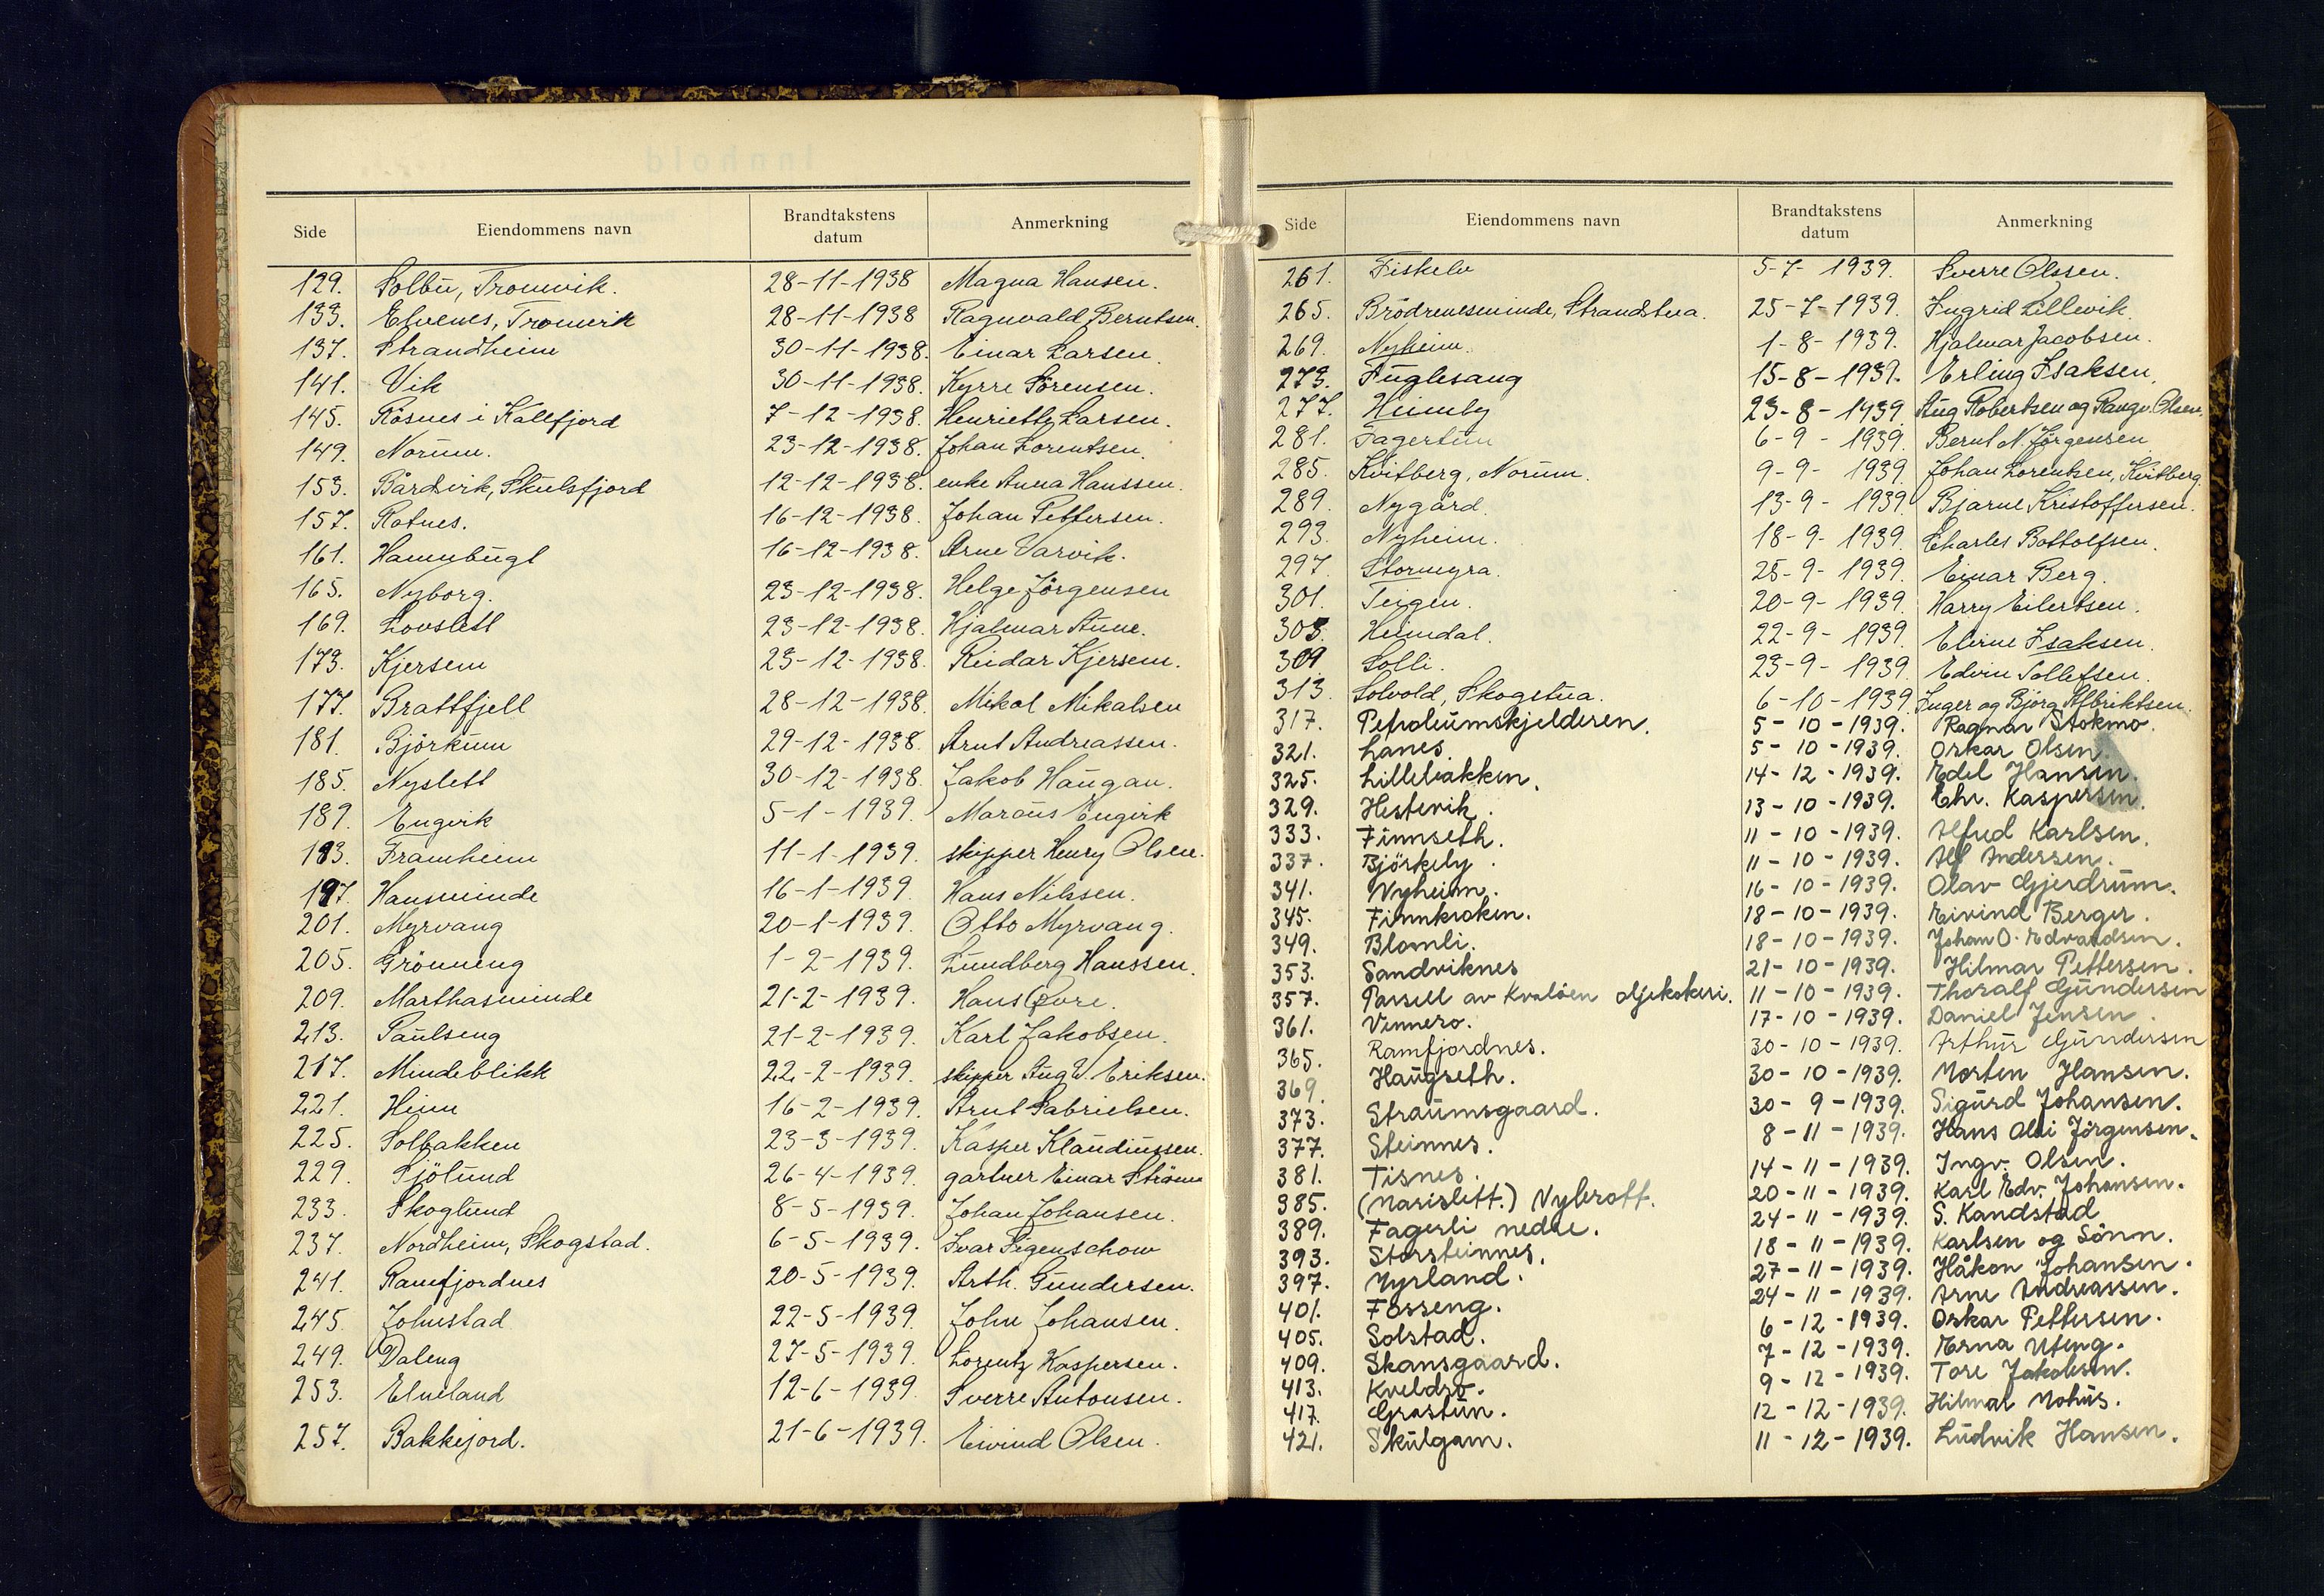 Side Eiendommens navn Brandtakstens datum Anmerkning
129. Solbu, Tromvik. 28-11-1938 Magna Hansen.
133. Elvenes, Tromvik 28-11-1938 Ragnvald Berntsen.
137. Strandheim 30-11-1938. Einar Larsen.
141. Vik 30-11-1938. Kyrre Sörensen.
145. Rösnes i Kallfjord 7-12-1938. Henriette Larsen.
149. Norum. 23-12-1938. Johan Lorentsen.
153. Bårdvik, Skulsfjord 12-12-1938. enke Anna Hanssen.
157. Rotnes. 16-12-1938. Johan Pettersen.
161. Hamnbugt 16-12-1938. Arne Varvik.
165. Nyborg. 23-12-1938. Helge Jörgensen
169. Lovslett 23-12-1938. Hjalmar Aune.
173. Kjersem 23-12-1938. Reidar Kjersem.
177. Brattfjell 28-12-1938. Mikal Mikalsen
181. Björkum 29-12-1938. Arnt Andreassen.
185. Nyslett 30-12-1938 Jakob Haugan.
189. Engvik 5-1-1939. Marius Engvik
193. Framheim 11-1-1939. skipper Henry Olsen.
197. Hansminde 16-1-1939. Hans Nilssen.
201. Myrvang 20-1-1939. Otto Myrvang.
205. Grönneng 1-2-1939. Lundberg Hanssen.
209. Marthasminde 21-2-1939. Hans Øvre.
213. Paulseng 21-2-1939. Karl Jakobsen.
217. Mindeblikk 22-2-1939. skipper Aug W. Eriksen.
221. Heim 16-2-1939. Arnt Gabrielsen.
225. Solbakken 23-3-1939. Kasper Klaudiussen.
229. Sjölund 26-4-1939. gartner Einar Ström
233. Skoglund 8-5-1939. Johan Johansen.
237. Nordheim, Skogstad. 6-5-1939. Ivar Figenschow
241. Ramfjordnes 20-5-1939. Arth. Gundersen.
245. Johnstad 22-5-1939. John Johansen.
249. Daleng 27-5-1939. Lorentz Kaspersen.
253. Elveland 12-6-1939. Sverre Antonsen.
257. Bakkejord. 21-6-1939. Eivind Olsen.
Side Eiendommens navn Brandtakstens datum Anmerkning
261. Fiskelv 5-7-1939. Sverre Olssen.
265. Brödrenesminde, Strandstua. 25-7-1939. Ingrid Lillevik.
269. Nyheim. 1-8-1939. Hjalmar Jacobsen.
273. Fuglesang 15-8-1939. Erling Isaksen.
277. Heimly 23-8-1939 Aug Robertsen og Rangv. Olsen.
281. Fagertun 6-9-1939. Bernt N. Jörgensen
285. Kvitberg, Norum. 9-9-1939. Johan Lorentsen, Kvitberg.
289. Nygård. 13-9-1939 Bjarne Kristoffersen.
293. Nyheim. 18-9-1939. Charles Bottolfsen.
297. Stormyra. 25-9-1939. Einar Berg.
301. Teigen. 20-9-1939. Harry Eilertsen.
305. Heimdal. 22-9-1939. Elvine Isaksen.
309. Solli. 23-9-1939. Edvin Tollefsen.
313. Solvold, Skogstua. 6-10-1939. Inger og Björg Albriktsen.
317. Petroleumskjelderen. 5-10-1939. Ragnar Stokmo.
321. Lanes. 5-10-1939. Oskar Olsen.
325. Lillebakken. 14-12-1939. Edel Hansen.
329. Hestevik. 13-10-1939. Chr. Kaspersen.
333. Finnseth. 11-10-1939. Alfred Karlsen.
337. Björkely. 11-10-1939. Alf Andersen.
341. Nyheim. 16-10-1939. Olav Gjerdrum.
345. Finnkroken. 18-10-1939. Eivind Berger.
349. Blomli. 18-10-1939. Johan O. Edvardsen.
353. Sandviknes 21-10-1939. Hilmar Pettersen.
357. Parsell av Kvalöen oljekokeri. 11-10-1939. Thoralf Gundersen
361. Vennero. 17-10-1939. Daniel Jensen.
365. Ramfjordnes. 30-10-1939. Arthur Gundersen
369. Haugseth. 30-10-1939. Morten Hansen.
373. Straumsgaard. 30-9-1939. Sigurd Johansen.
377. Steinnes. 8-11-1939. Hans Olai Jörgensen.
381. Tisnes. 14-11-1939. Ingv. Olsen.
385. (Marislett.) Nybrott. 20-11-1939. Karl Edv. Johansen.
389. Fagerli nedre. 24-11-1939. S. Kandstad
393. Storsteinnes. 18-11-1939. Karlsen og Sönn.
397. Myrland. 27-11-1939. Håkon Johansen.
401. Fosseng. 24-11-1939. Arne Andreassen.
405. Solstad. 6-12-1939. Oskar Pettersen.
409. Skansgaard. 7-12-1939. Erna Uteng.
413. Kveldro. 9-12-1939. Tore Jakobsen.
417. Grastun. 12-12-1939. Hilmar Mohus.
421. Skulgam. 11-12-1939. Ludvik Hansen.